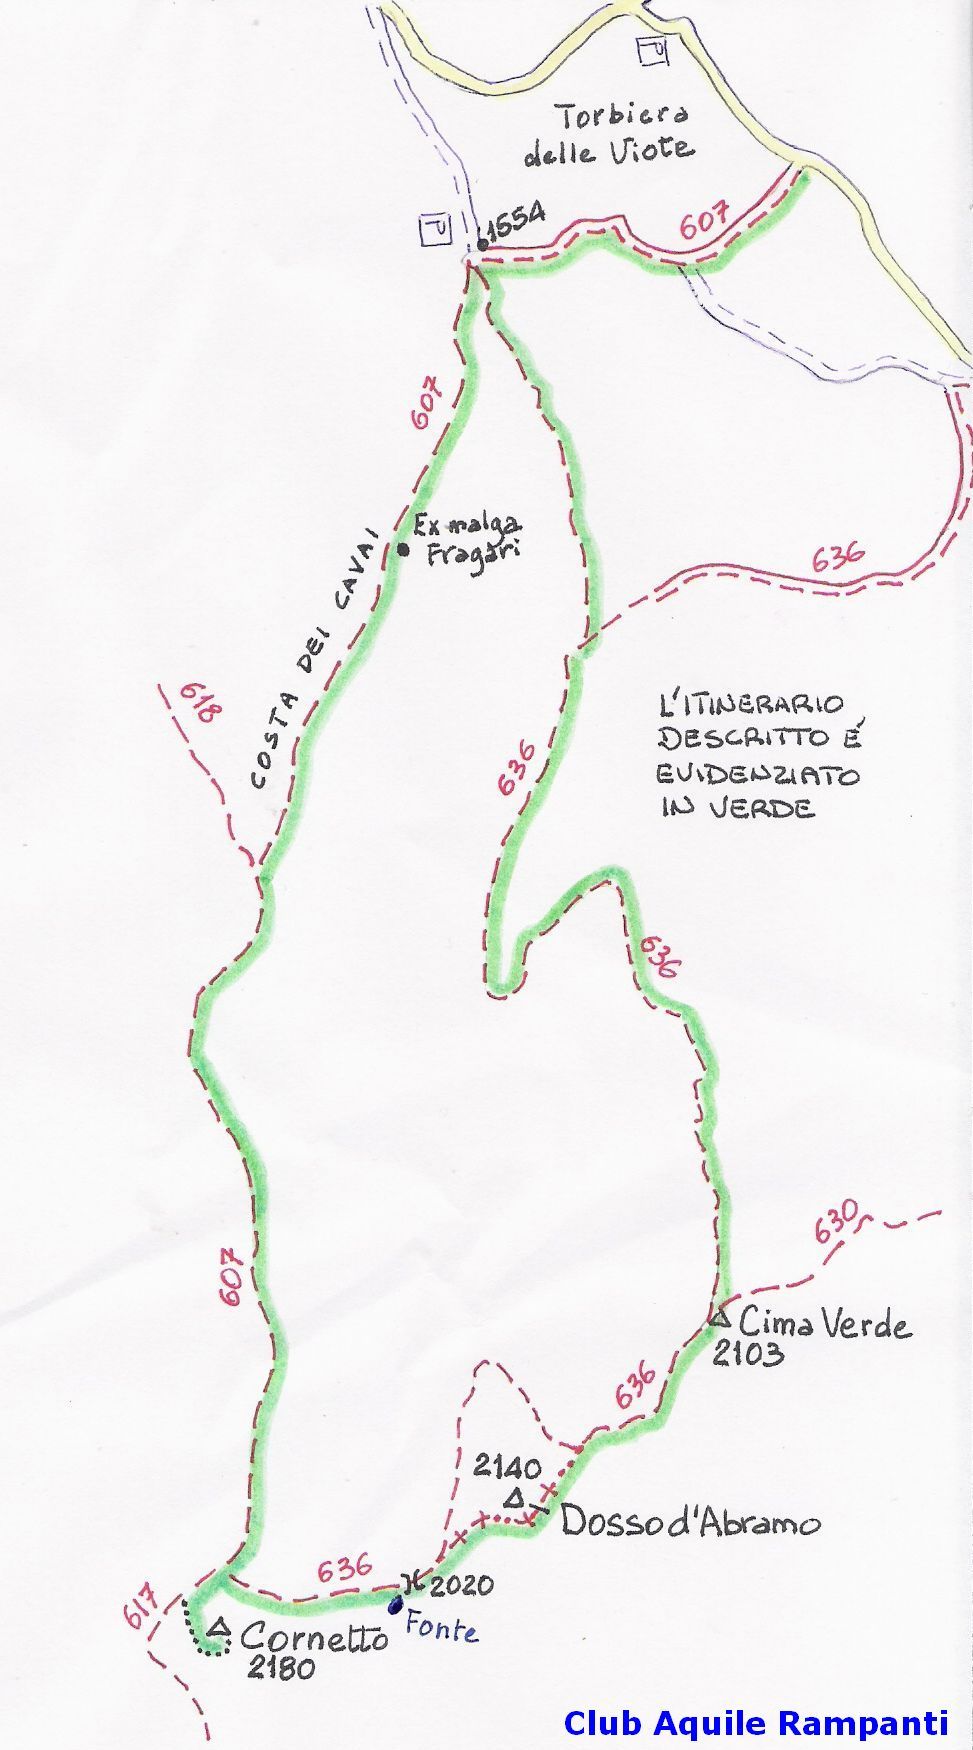 P
Torbiera
delle Viote
P
1554
607
607
Ex malga
Fragari
COSTA DEI CAVAI
636
618
L'ITINERARIO
DESCRITTO É
EVIDENZIATO
IN VERDE
636
636
630
607
Cima Verde
2103
636
2140
Dosso d'Abramo
636
2020
617
Fonte
Cornetto
2180
Club Aquile Rampanti